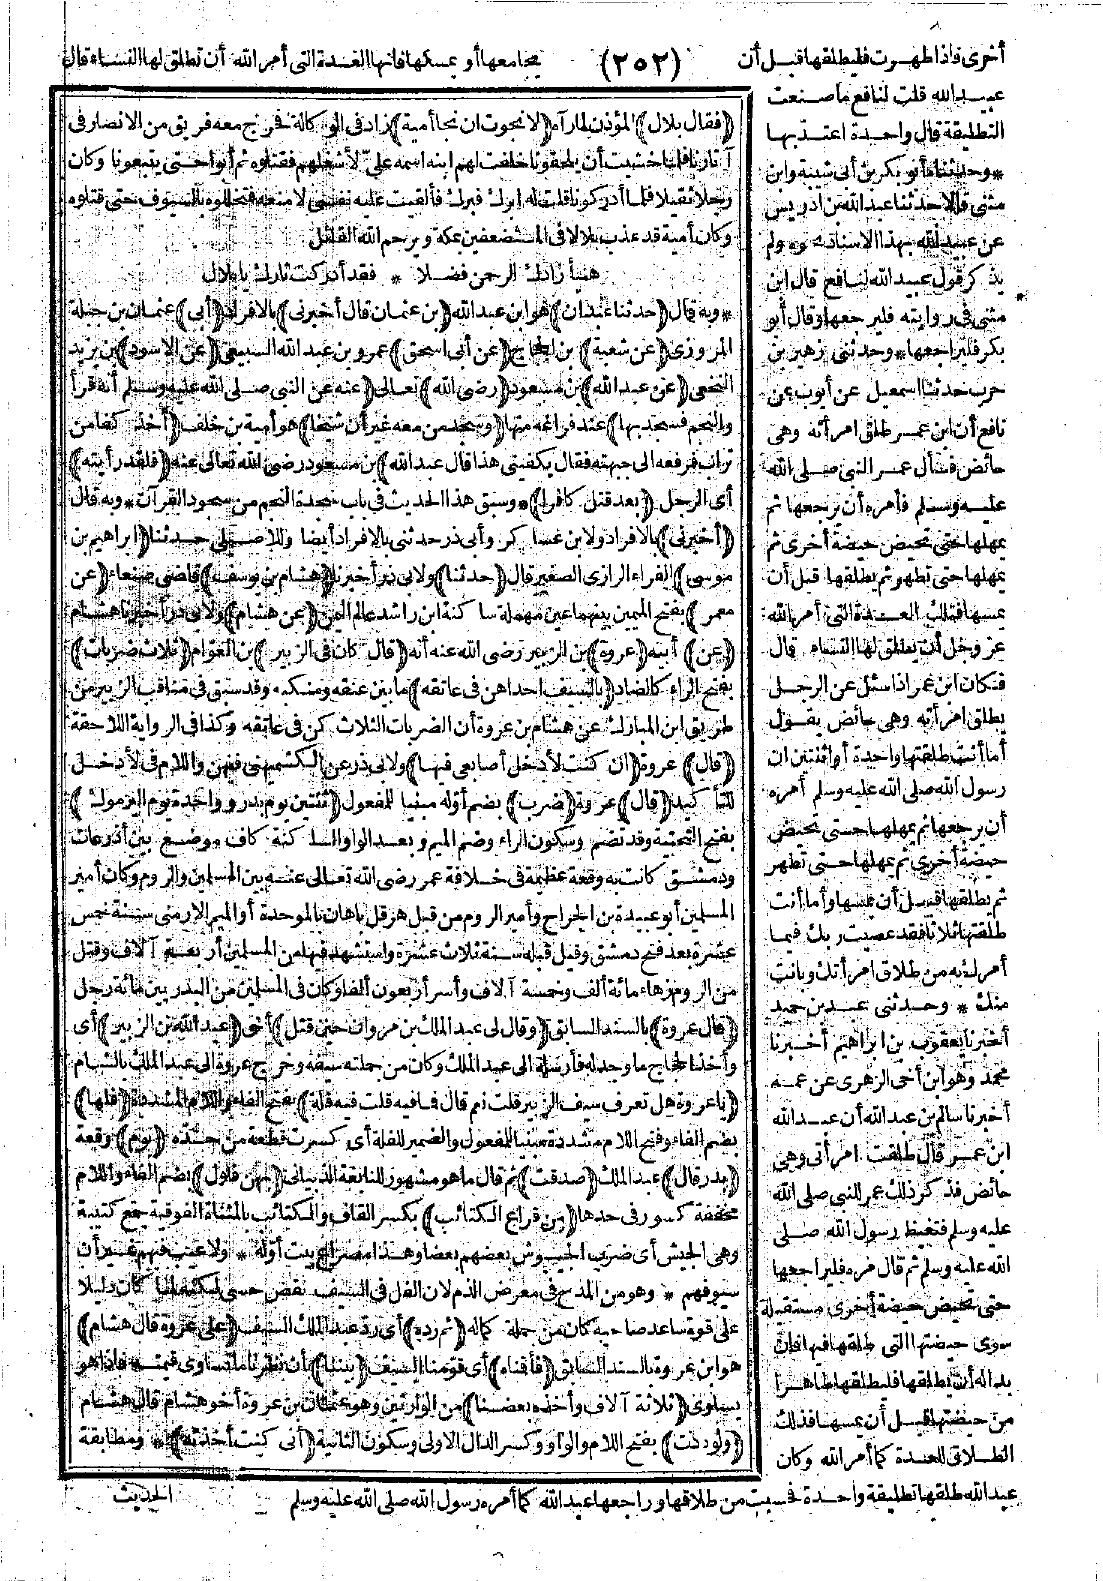 أخرى فاذا طهرت فليطلقها قبل أن (٢٥٢) يجامعها أو يمسكها فانها العدة التى أمر الله أن تطلق لها النساء قال
عبيد الله قلت لنافع ما صنعت
التطليقة قال واحدة اعتد بها
* وحدثناه أبو بكر بن أبى شيبة وابن
مثنى قالا حدثنا عبد الله بن ادريس
عن عبيد الله بهذا الاسناد نحوه ولم
يذكر قول عبيد الله لنافع قال ابن
مثنى فى روايته فليرجعها وقال أبو
بكر فليراجعها * وحدثنى زهير بن
حرب حدثنا اسمعيل عن أيوب عن
نافع أن ابن عمر طلق امرأته وهى
حائض فسأل عمر النبى صلى الله
عليه وسلم فأمره أن يرجعها ثم
يمهلها حتى تحيض حيضة أخرى ثم
يمهلها حتى تطهر ثم يطلقها قبل أن
يمسها فتلك العدة التى أمر الله
عز وجل أن يطلق لها النساء قال
فكان ابن عمر اذا سئل عن الرجل
يطلق امرأته وهى حائض يقول
أما أنت طلقتها واحدة أو اثنتين ان
رسول الله صلى الله عليه وسلم أمره
أن يرجعها ثم يمهلها حتى تحيض
حيضة أخرى ثم يمهلها حتى تطهر
ثم يطلقها قبل أن يمسها وأما أنت
طلقتها ثلاثا فقد عصيت ربك فيما
أمرك به من طلاق امرأتك وبانت
منك * وحدثنى عبد بن حميد
أخبرنا يعقوب بن ابراهيم أخبرنا
محمد وهو ابن أخى الزهرى عن عمه
أخبرنا سالم بن عبد الله أن عبد الله
ابن عمر قال طلقت امرأتى وهى
حائض فذكر ذلك عمر للنبى صلى الله
عليه وسلم فتغيظ رسول الله صلى
الله عليه وسلم ثم قال مره فليراجعها
حتى تحيض حيضة أخرى مستقبلة
سوى حيضتها التى طلقها فيها فان
بدا له أن يطلقها فليطلقها طاهرا
من حيضتها قبل أن يمسها فذلك
الطلاق للعدة كما أمر الله وكان
عبد الله طلقها تطليقة واحدة فحسبت من طلاقها وراجعها عبد الله كما أمره رسول الله صلى الله عليه وسلم
(فقال بلال) المؤذن لما رآه (لا نجوت ان نجا أمية) زاد فى الوكالة فخرج معه فريق من الانصار فى
آثارنا فلما خشيت أن يلحقونا خلفت لهم ابنه اسمه على لأشغلهم فقتلوه ثم أبوا حتى يتبعونا وكان
رجلا ثقيلا فلما أدركونا قلت له ابرك فبرك فألقيت عليه نفسى لامنعه فتخللوه بالسيوف حتى قتلوه
وكان أمية قد عذب بلالا فى المستضعفين بمكة ويرحم الله القائل
هنيأ زادك الرحمن فضلا * فقد أدركت ثارك يا بلال
* وبه قال (حدثنا عبدان) هو ابن عبد الله (بن عثمان قال أخبرنى) بالافراد (أبى) عثمان بن جبلة
المروزى (عن شعبة) بن الحجاج (عن أبى اسحق) عمرو بن عبد الله السبيعى (عن الاسود) بن يزيد
النخعى (عن عبد الله) بن مسعود (رضى الله) تعالى (عنه عن النبى صلى الله عليه وسلم أنه قرأ
والنجم فسجد بها) عند فراغه منها (وسجد من معه غير أن شيخا) هو أمية بن خلف (أخذ كفا من
تراب فرفعه الى جبهته فقال يكفينى هذا قال عبد الله) بن مسعود رضى الله تعالى عنه (فلقد رأيته)
أى الرجل (بعد قتل كافرا) * وسبق هذا الحديث فى باب سجدة النجم من سجود القرآن * وبه قال
(أخبرنى) بالافراد ولابن عساكر وأبى ذر حدثنى بالافراد أيضا وللاصيلى حدثنا (ابراهيم بن
موسى) الفراء الرازى الصغير قال (حدثنا) ولابى ذر أخبرنا (هشام بن يوسف) قاضى صنعاء (عن
معمر) بفتح الميمين بينهما عين مهملة ساكنة ابن راشد عالم اليمن (عن هشام) ولابى ذر أخبرنا هشام
(عن) أبيه (عروة) بن الزبير رضى الله عنه أنه (قال كان فى الزبير) بن العوام (ثلاث ضربات)
بفتح الراء كالضاد (بالسيف احداهن فى عاتقه) ما بين عنقه ومنكبه وقد سبق فى مناقب الزبير من
طريق ابن المبارك عن هشام بن عروة أن الضربات الثلاث كن فى عاتقه وكذا فى الرواية اللاحقة
(قال) عروة (ان كنت لأدخل أصابعى فيها) ولابى ذر عن الكشميهنى فيهن واللام فى لأدخل
للتأكيد (قال) عروة (ضرب) بضم أوله مبنيا للمفعول (ثنتين يوم بدر وواحدة يوم اليرموك)
بفتح التحتية وقد تضم وسكون الراء وضم الميم وبعد الواو الساكنة كاف موضع بين أذرعات
ودمشق كانت به وقعة عظيمة فى خلافة عمر رضى الله تعالى عنه بين المسلمين والروم وكان أمير
المسلمين أبو عبيدة بن الجراح وأمير الروم من قبل هرقل باهان بالموحدة أو الميم الارمنى سنة خمس
عشرة بعد فتح دمشق وقيل قبله سنة ثلاث عشرة واستشهد فيها من المسلمين أربعة آلاف وقتل
من الروم زهاء مائة ألف وخمسة آلاف وأسر أربعون ألفا وكان فى المسلمين من البدريين مائة رجل
(قال عروة) بالسند السابق (وقال لى عبد الملك بن مروان حين قتل) أخى (عبد الله بن الزبير) أى
وأخذ الحجاج ما وجد له فأرسله الى عبد الملك وكان من جملته سيفه وخرج عروة الى عبد الملك بالشام
(يا عروة هل تعرف سيف الزبير قلت نعم قال فما فيه قلت فيه فلة) بفتح الفاء واللام المشددة (فلها)
بضم الفاء وفتح اللام مشددة مبنيا للمفعول والضمير للفلة أى كسرت قطعة من حده (يوم) وقعة
(بدر قال) عبد الملك (صدقت) ثم قال ما هو مشهور للنابغة الذبيانى (بهن فلول) بضم الفاء واللام
مخففة كسور فى حدها (من قراع الكتائب) بكسر القاف والكتائب بالمثناة الفوقية جمع كتيبة
وهى الجيش أى ضرب الجيوش بعضهم بعضا وهذا مصراع بيت أوله * ولا عيب فيهم غير أن
سيوفهم * وهو من المدح فى معرض الذم لان الفل فى السيف نقص حسى لكنه لما كان دليلا
على قوة ساعد صاحبه كان من جملة كماله (ثم رده) أى رد عبد الملك السيف (على عروة قال هشام)
هو ابن عروة بالسند السابق (فأقمناه) أى قومنا السيف (بيننا) أن نظرنا ما تساوى قيمته فاذا هو
يساوى (ثلاثة آلاف وأخذه بعضنا) من الوارثين وهو عثمان بن عروة أخو هشام قال هشام
(ولوددت) بفتح اللام والواو وكسر الدال الاولى وسكون الثانية (أنى كنت أخذته) * ومطابقة
الحديث